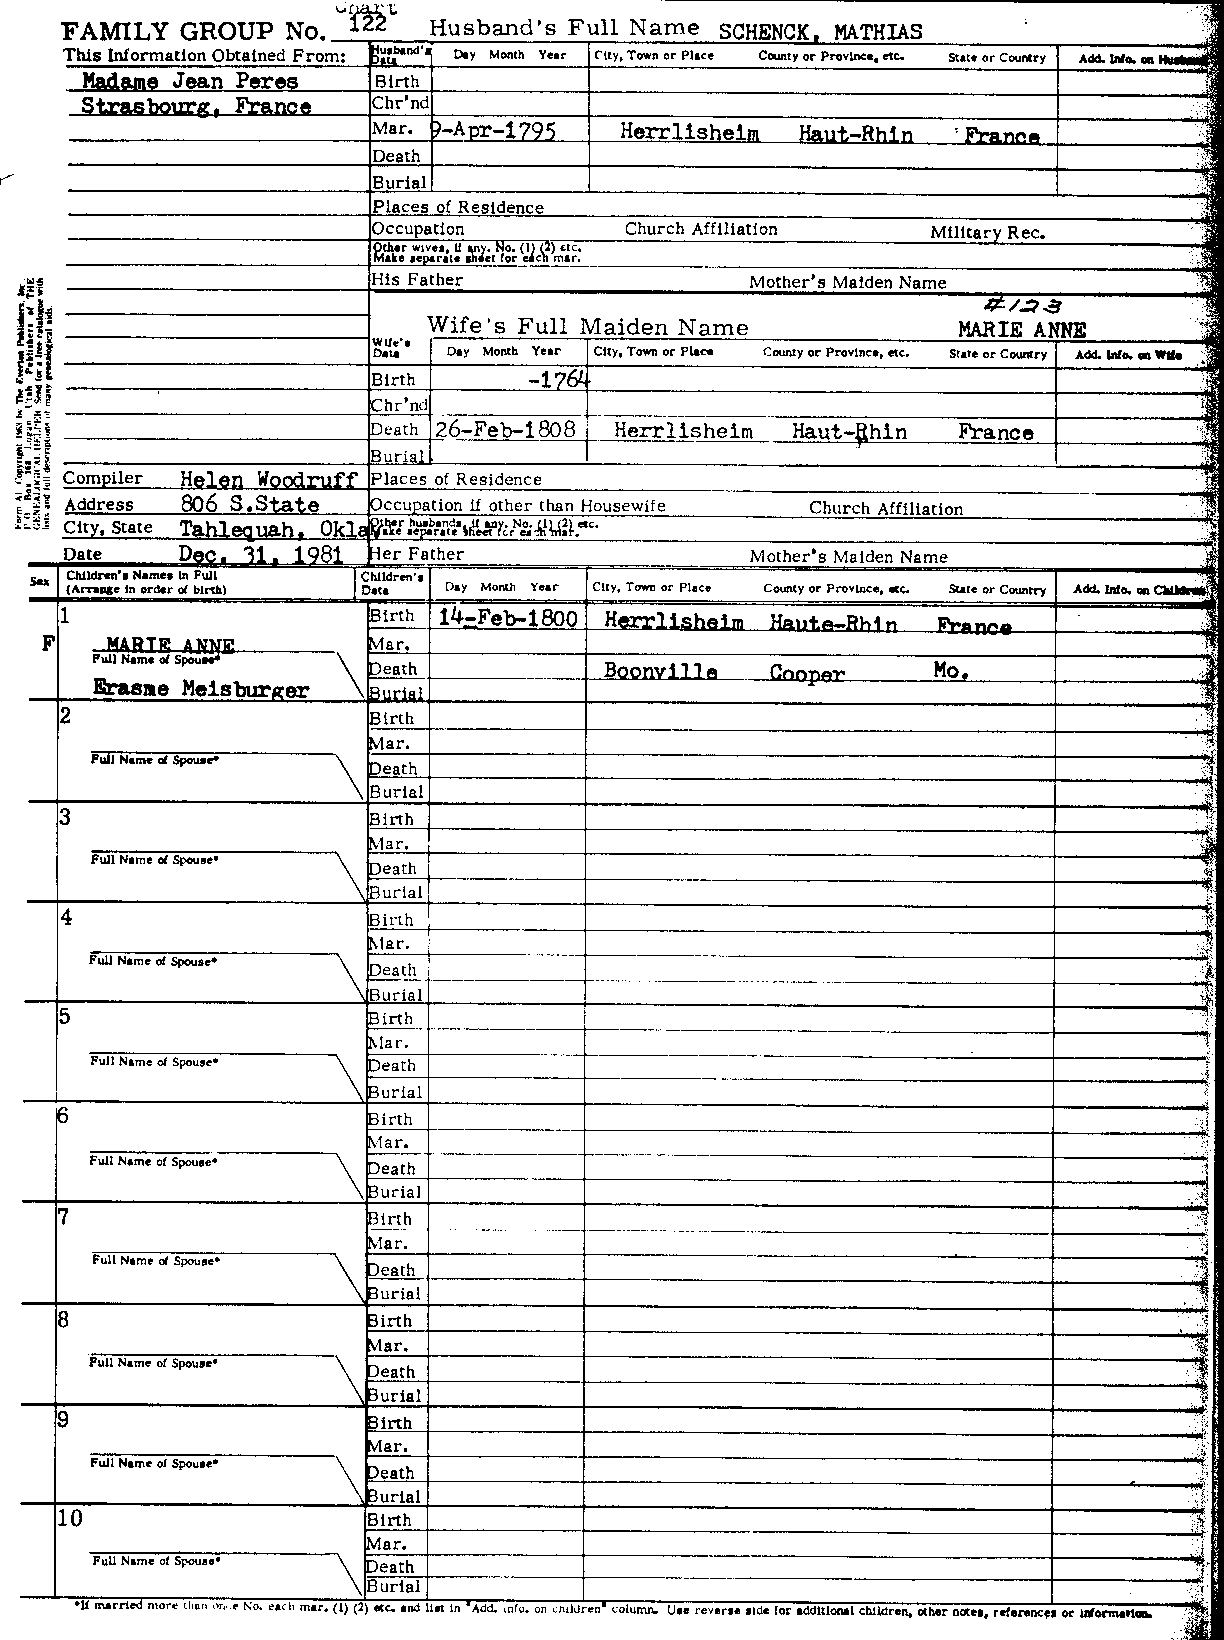 Chart
FAMILY GROUP No. 122 Husband's Full Name SCHENCK, MATHIAS
This Information Obtained From: Husband's Data Day Month Year City, Town or Place County or Province, etc. State or Country Add. Info. on Husband
Madame Jean Peres Birth
Strasbourg, France Chr'nd
Mar. 9-Apr-1795 Herrlisheim Haut-Rhin France
Death
Burial
Places of Residence
Occupation Church Affiliation Military Rec.
Other wives, if any. No. (1) (2) etc.
Make separate sheet for each mar.
His Father Mother's Maiden Name
#123
Wife's Full Maiden Name MARIE ANNE
Wife's Data Day Month Year City, Town or Place County or Province, etc. State or Country Add. Info. on Wife
Birth -1764
Chr'nd
Death 26-Feb-1808 Herrlisheim Haut-Rhin France
Burial
Compiler Helen Woodruff Places of Residence
Address 806 S.State Occupation if other than Housewife Church Affiliation
City, State Tahlequah, Okla Other husbands, if any. No. (1) (2) etc.
Make separate sheet for each mar.
Date Dec. 31, 1981 Her Father Mother's Maiden Name
Sex Children's Names in Full (Arrange in order of birth) Children's Data Day Month Year City, Town or Place County or Province, etc. State or Country Add. Info. on Children
1 Birth 14-Feb-1800 Herrlisheim Haute-Rhin France
F MARIE ANNE Mar.
Full Name of Spouse* Death Boonville Cooper Mo.
Erasme Meisburger Burial
2 Birth
Mar.
Full Name of Spouse* Death
Burial
3 Birth
Mar.
Full Name of Spouse* Death
Burial
4 Birth
Mar.
Full Name of Spouse* Death
Burial
5 Birth
Mar.
Full Name of Spouse* Death
Burial
6 Birth
Mar.
Full Name of Spouse* Death
Burial
7 Birth
Mar.
Full Name of Spouse* Death
Burial
8 Birth
Mar.
Full Name of Spouse* Death
Burial
9 Birth
Mar.
Full Name of Spouse* Death
Burial
10 Birth
Mar.
Full Name of Spouse* Death
Burial
*If married more than once No. each mar. (1) (2) etc. and list in "Add. info. on children" column. Use reverse side for additional children, other notes, references or information.
Form A1 Copyright 1963 by The Everton Publishers, Inc.
P.O. Box 368 Logan, Utah Publishers of THE
GENEALOGICAL HELPER Send for a free catalogue with
lists and full descriptions of many genealogical aids.